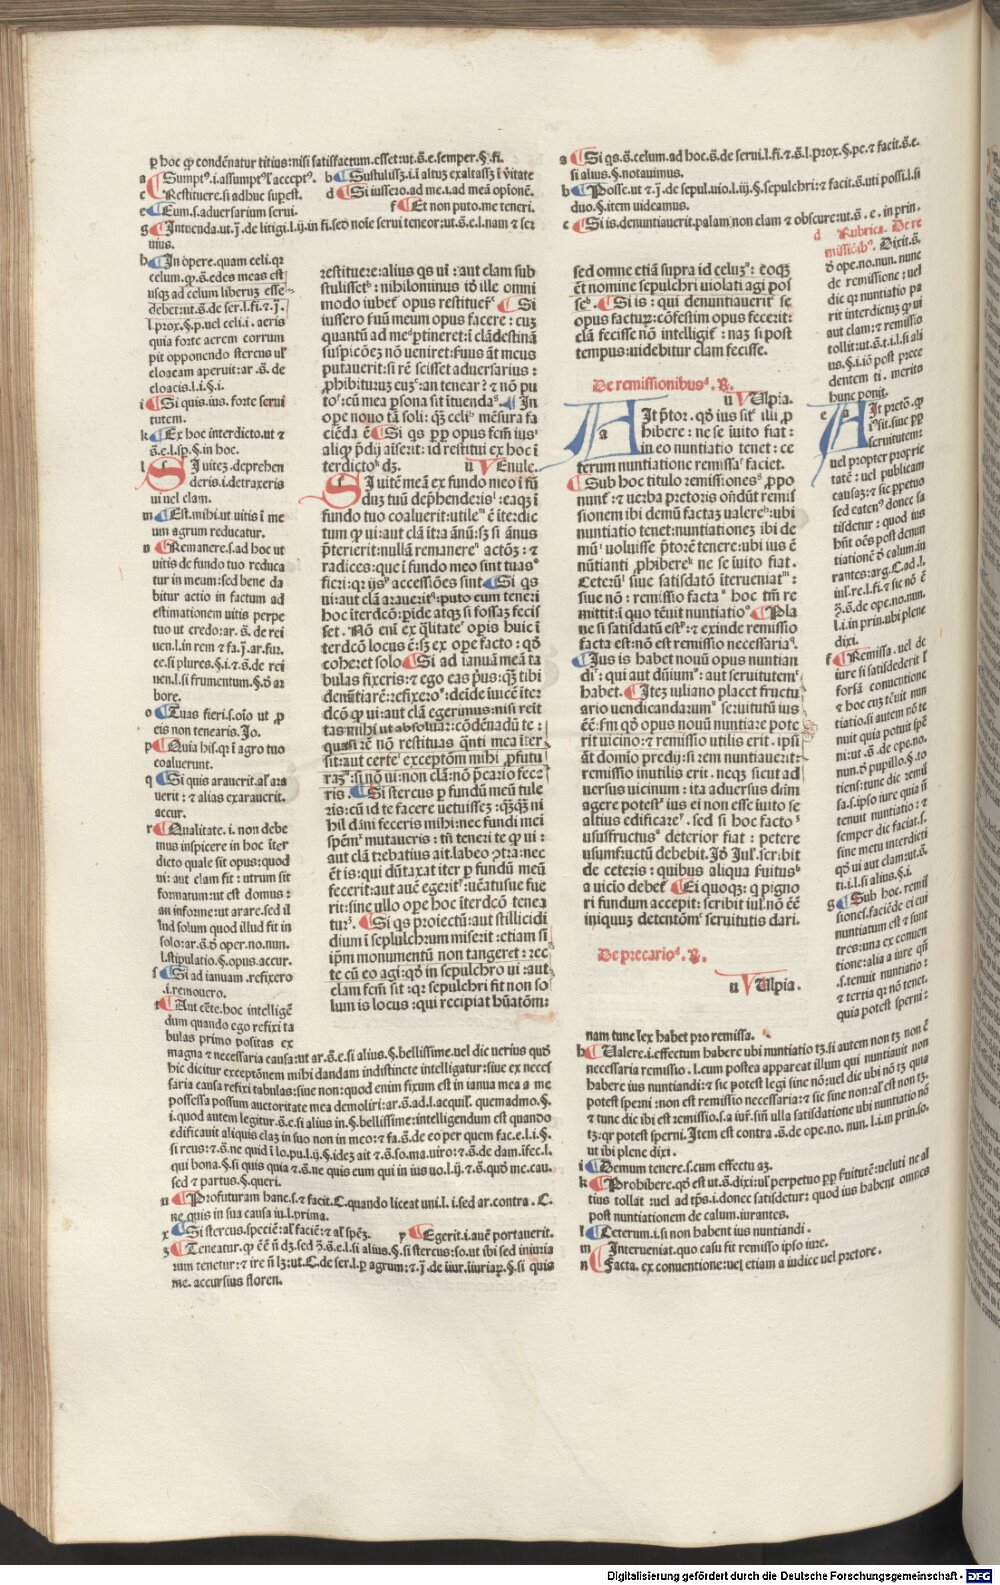 p hoc qp condēnatur titius:nisi satisfactum.esset:ut.s̄.e.semper.§.fi.
a Sumptꝰ.i.assumptꝰl acceptꝰ.
c Restituere.si adhuc supest.
e Eum.s.aduersarium serui.
b Sustulissꝫ.i.i altuꝫ exaltassꝫ
d Si iussero.ad me.i.ad meā opionē.
f Et non puto.me teneri.
g Intuenda.ut.j̄.de litigi.l.ij.in fi.sed noīe serui teneor:ut.s̄.e.l.nam ⁊ ser
uius.
h In opere.quam celi.qꝛ
celum.qp.s̄.edes meas est
usqꝫ ad celum liberuꝫ esse
debet:ut.s̄.de ser.l.fi.⁊.j̄.
l.prox.§.p.uel celi.i.aeris
quia forte aerem corrum
pit opponendo stercus ul
cloacam aperuit:ar.s̄.de
cloacis.l.i.§.i.
i Si quis.ius.forte serui
tutem.
k Ex hoc interdicto.ut ⁊
s̄.e.l.sp.§.in hoc.
l Si uiteꝫ.deprehen
deris.i.detraxeris
ui uel clam.
m Est.mihi.ut uitis ī me
um agrum reducatur.
n Remanere.s.ad hoc ut
uitis de fundo tuo reduca
tur in meum:sed bene da
bitur actio in factum ad
estimationem uitis perpe
tuo ut credo:ar.s̄.de rei
uen.l.in rem ⁊ fa.j̄.ar.fur.
ce.si plures.§.i.⁊.s̄.de rei
uen.l.si frumentum.§.ō ar
bore.
o Tuas fieri.s.oīo ut p
eis non tenearis.Jo.
p Quia his.qꝛ ī agro tuo
coaluerunt.
q Si quis arauerit.al ara
uerit:⁊ alias exarauerit.
accur.
r Qualitate.i.non debe
mus inspicere in hoc īter
dicto quale sit opus:quod
ui:aut clam fit:utrum sit
formatum:ut est domus:
an informe:ut arare.sed il
lud solum quod illud fit in
solo:ar.s̄.ō oper.no.nun.
l.stipulatio.§.opus.accur.
s Si ad ianuam.refixero
.i.remouero.
t Aut certe.hoc intelligē
dum quando ego refixi ta
bulas primo positas ex
magna ⁊ necessaria causa:ut ar.s̄.e.si alius.§.bellissime.uel dic uerius quō
hic dicitur exceptōnem mihi dandam indistincte intelligatur:siue ex neces
saria causa refixi tabulas:siue non:quod enim fixum est in ianua mea a me
possessa possum auctoritate mea demoliri:ar.s̄.ad.l.acquil.quemadmo.§.
i.quod autem legitur.s̄.e.si alius in.§.bellissime:intelligendum est quando
edificauit aliquis claꝫ in suo non in meo:⁊ fa.s̄.de eo per quem fac.e.l.i.§.
si reus:⁊.s̄.ne quid ī lo.pu.l.ij.§.ideꝫ ait ⁊.s̄.so.ma.uiro:⁊.s̄.de dam.ifec.l.
qui bona.§.si quis quia ⁊.s̄.ne quis eum qui in ius uo.l.ij.⁊.s̄.quō me.cau.
sed ⁊ partus.§.queri.
u Profuturam hanc.s.⁊ facit.C.quando liceat uni.l.i.sed ar.contra.C.
ne quis in sua causa iu.l.prima.
x Si stercus.speciē:al faciē:⁊ al spēꝫ.
y Egerit.i.auē portauerit.
z Teneatur.qp ēē n̄ dꝫ.sed ꝫ.s̄.e.l.si alius.§.si stercus:so.ut ibi sed iniuria
rum tenetur:⁊ ire n̄ lꝫ:ut.C.de ser.l.p agrum:⁊.j̄.de iiur.iiuriaꝝ.§.si quis
me.accursius floren.
restituere:alius qs ui:aut clam sub
stulissetᵇ:nihilominus iō ille omni
modo iubeī opus restituerᶜ. Si
iussero fuū meum opus facere:cuꝫ
quantū ad meᵈptineret:ī clādestinā
suspicōeꝫ nō ueniret:fuus āt meus
putauerit:si rē scisset aduersarius:
phibituruꝫ euꝫᵉ:an tenear? ⁊ nō pu
toᶠ:cū mea psona sit ītuendaᵍ. In
ope nouo tā soli:qꝫ celiʰ mēsura fa
ciēda ē Si qs pp opus fcm̄ iusⁱ
aliqp pdij aiserit:id restitui ex hoc ī
terdictoᵏ dꝫ. u Venule.
Si uitē meā ex fundo meo ī fū
duꝫ tuū dephenderisˡ:eaqꝫ ī
fundo tuo coaluerit:utileᵐ ē īte:dic
tum qp ui:aut clā ītra ānū:sꝫ si ānus
pterierit:nullā remanereⁿ actōꝫ:⁊
radices:que ī fundo meo sint tuasᵒ
fieri:qꝛ ijsᵖ accessiōes sint Si qs
ui:aut clā arauerit:puto eum teneri
hoc īterdcō:pide atqꝫ si fossaꝫ fecis
set. Nō eni ex qlitateʳ opis huic ī
terdcō locus ē:sꝫ ex ope facto:qō
coheret solo Si ad ianuā meā ta
bulas fixeris:⁊ ego eas pus:qꝫ tibi
denūtiarē:refixeroˢ:deīde iuicē īter
dcō qp ui:aut clā egerimus:nisi reīt
tas mihi ut absoluar:cōdēnadū te:
quasi rē nō restituas qnti mea īter
sit:aut certeᵗ exceptōm mihi pfutu
raꝫᵘ:si nō ui:non clā:nō pcario fece
ris. Si stercus p fundū meū tule
ris:cū id te facere uetuisseꝫ:qꝫqꝫ ni
hil dāni feceris mihi:nec fundi mei
spēmˣ mutaueris:tn̄ teneri te qp ui:
aut clā trebatius ait.labeo ꝯtra:nec
ēt is:qui dūtaxat iter p fundū meū
fecerit:aut auē egeritʸ:uenatusue fue
rit:sine ullo ope hoc īterdcō tenea
turᶻ. Si qs proiectū:aut stillicidi
dium ī seplulchrum miserit:etiam si
ipm monumentū non tangeret:rec
te cū eo agi:qō in sepulchro ui:aut
clam fcm̄ sit:qꝛ sepulchri fit non so
lum is locus:qui recipiat hūatōm:
sed omne etiā supra id celuꝫᵃ:eoqꝫ
ēt nomine sepulchri uiolati agi pos
seᵇ. Si is:qui denuntiauerit se
opus factuꝝ:cōfestim opus fecerit:
clā fecisse nō intelligiī:naꝫ si post
tempus:uidebitur clam fecisse.
De remissionibusᵈ.R.
u Vlpia.
Ait ptor.qō ius sit illi p
hibere:ne se iuito fiat:
in eo nuntiatio tenet:ce
terum nuntiatione remissaᶠ faciet.
Sub hoc titulo remissionesᵍ ppo
nunī:⁊ uerba pretoris ondūt remis
sionem ibi demū factaꝫ ualereʰ:ubi
nuntiatio tenet:nuntiationeꝫ ibi de
mūⁱ uoluisse ptorē tenere:ubi ius ē
nūtianti phibereᵏ ne se iuito fiat.
Ceterūˡ siue satisdatō īterueniatᵐ:
siue nō:remissio factaⁿ hoc tm̄ re
mittit:ī quo tēuit nuntiatioᵒ Pla
ne si satisdatū estᵖ:⁊ exinde remissio
facta est:nō est remissio necessaria.
Jus is habet nouū opus nuntian
di:qui aut dn̄ium:aut seruitutem
habet. Iteꝫ iuliano placet fructu
ario uendicandarum seruitutū ius
ēē:fm qō opus nouū nuntiare pote
rit uicino:⁊ remissio utilis erit.ipsi
āt domio predij:si rem nuntiauerit:
remissio inutilis erit.neqꝫ sicut ad
uersus uicinum:ita aduersus dn̄m
agere potest ius ei non esse iuito se
altius edificare.sed si hoc facto
ususfructus deterior fiat:petere
usumfructū debebit.Jō Jul.scribit
de ceteris:quibus aliqua fuitus
a uicio debeī Ei quoqꝫ:q pigno
ri fundum accepit:scribit iul.nō ēē
iniquuꝫ detentōm seruitutis dari.
De precarioᵈ.R.
u Vlpia.
a Si qs.s̄.celum.ad hoc.s̄.de serui.l.fi.⁊.s̄.l.prox.§.pe.⁊ facit.s̄.e.
si alius.§.notauimus.
b Posse.ut ⁊.j̄.de sepul.uio.l.iij.§.sepulchri:⁊ facit.s̄.uti possi.l.si
duo.§.item uideamus.
c Si is.denuntiauerit.palam non clam ⁊ obscure:ut.s̄.e.in prin.
d Rubrica. De re
missiōibꝰ. Dixit.s̄.
ō ope.no.nun.nunc
de remissione:uel
dic qꝛ nuntiatio pa
rit interdictuꝫ qp ui
aut clam:⁊ remissio
tollit:ut.s̄.t.i.l.si ali
us.§.i.iō post prece
dentem ti. merito
hunc ponit.
e Ait pretō.qp
iꝰ sit.siue pp
seruitutem:
uel propter proprie
tatē:uel publicam
causaꝫ:⁊ sic ppetuo
sed eatenꝰ donec sa
tisdetur:quod ius
hn̄t oēs post denun
tiationē ō calum.iu
rantes:arg.C.ad.l.
iul.re.l.fi.⁊ sic nō ē
ꝫ.s̄.de ope.no.nun.
l.i.in prin.ubi plene
dixi.
f Remissa.uel de
iure si satisdederit l
forsā conuentione
⁊ hoc cuꝫ tēuit nun
tiatio.si autem nō te
nuit quia potuit spē
ni:ut.s̄.de ope.no.
nun.ō pupillo.§.to
tiens:tunc dic remis
sa.s.ipso iure quia n̄
tenuit nuntiatio:⁊
semper dic faciat.s.
sine metu interdicti
qō ui aut clam:ut.s̄.
ti.i.l.si alius.§.i.
g Sub hoc.remis
siones.faciēde ei cui
nuntiatum est ⁊ sunt
tres:una ex conuen
tione:alia a iure qn̄
.s.tenuit nuntiatio:
⁊ tertia qꝛ nō tenet.
quia potest sperni:
nam tunc lex habet pro remissa.
h Valere.i.effectum habere ubi nuntiatio tꝫ.si autem non tꝫ non ē
necessaria remissio.l.cum postea appareat illum qui nuntiauit non
habere ius nuntiandi:⁊ sic potest legi sine nō:uel dic ubi nō tꝫ quia
potest sperni:non est remissio necessaria:⁊ sic sine non:al est non tꝫ.
⁊ tunc dic ibi est remissio.s.a iur.sin ulla satisdatione ubi nuntiatio nō
tꝫ:qꝛ potest sperni.Item est contra.s̄.de ope.no.nun.l.i.in prin.so.
ut ibi plene dixi.
i Demum tenere.s.cum effectu aꝫ.
k Prohibere.qō est ut.s̄.dixi:ul perpetuo pp fuitutē:ueluti ne al
tius tollat:uel ad tps.i.donec satisdetur:quod ius habent omnes
post nuntiationem de calum.iurantes.
l Ceterum.i.si non habent ius nuntiandi.
m Interueniat.quo casu fit remissio ipso iure.
n Facta.ex conuentione:uel etiam a iudice uel pretore.
Digitalisierung gefördert durch die Deutsche Forschungsgemeinschaft - DFG